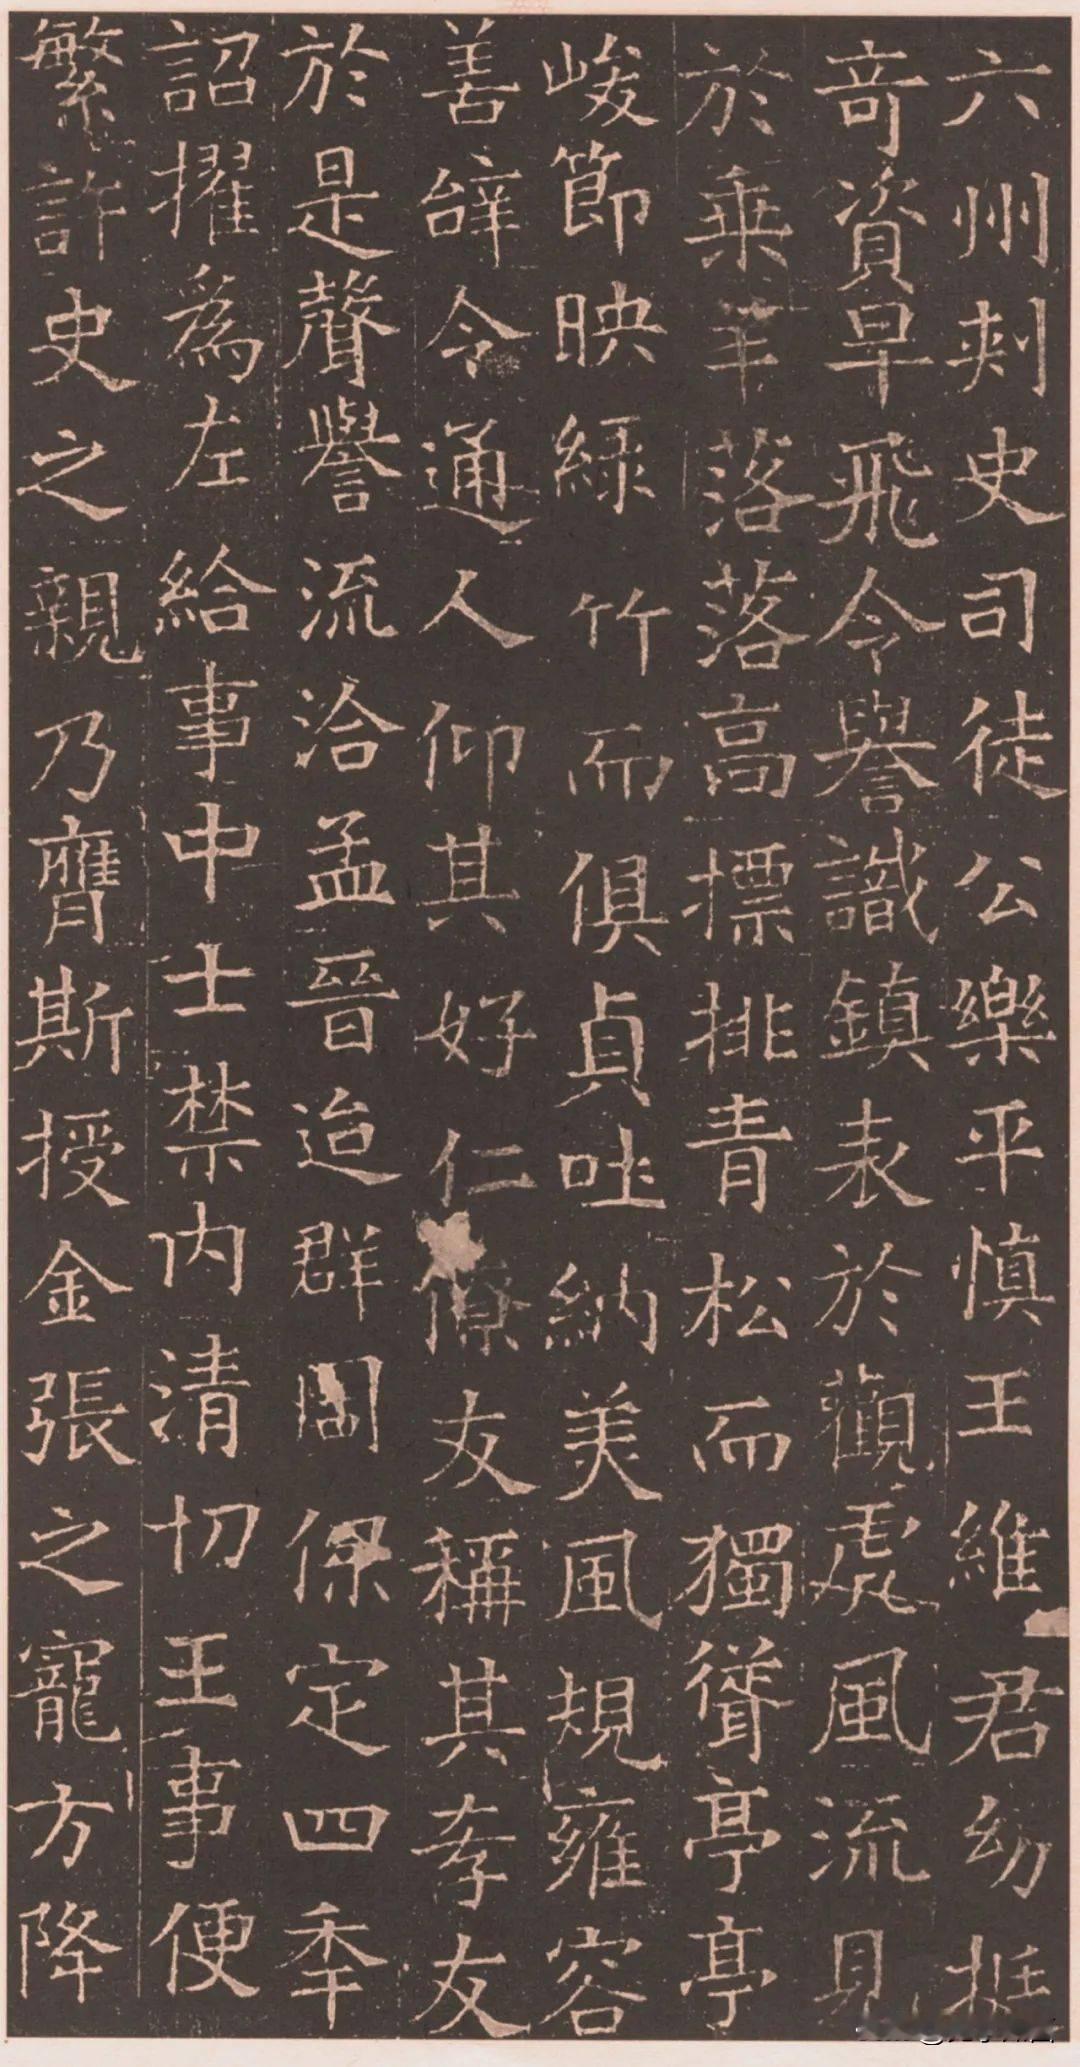 六州刾史司徒公樂平慎王維君幼挺
竒資早飛令譽識鎮表於觀處風流見
於乗羊落落高摽排青松而獨聳亭亭
峻節映緑竹而俱貞吐納美風規雍容
善辝令通人仰其好仁僚友稱其孝友
於是聲譽流洽孟晉迨群閤保定四秊
詔擢為左給事中士禁内清切王事便
繁許史之親乃膺斯授金張之寵方降